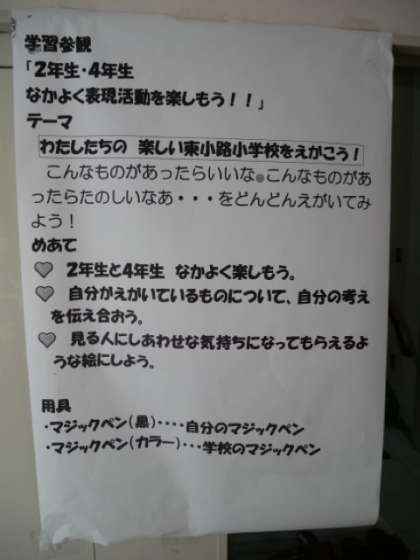 学習参観
「２年生・４年生
なかよく表現活動を楽しもう！！」
テーマ
わたしたちの　楽しい東小路小学校をえがこう！
こんなものがあったらいいな。こんなものがあ
ったらたのしいなあ・・・をどんどんえがいてみ
よう！
めあて
２年生と４年生　なかよく楽しもう。
自分がえがいているものについて、自分の考え
を伝え合おう。
見る人にしあわせな気持ちになってもらえるよ
うな絵にしよう。
用具
・マジックペン（黒）・・・・自分のマジックペン
・マジックペン（カラー）・・・学校のマジックペン